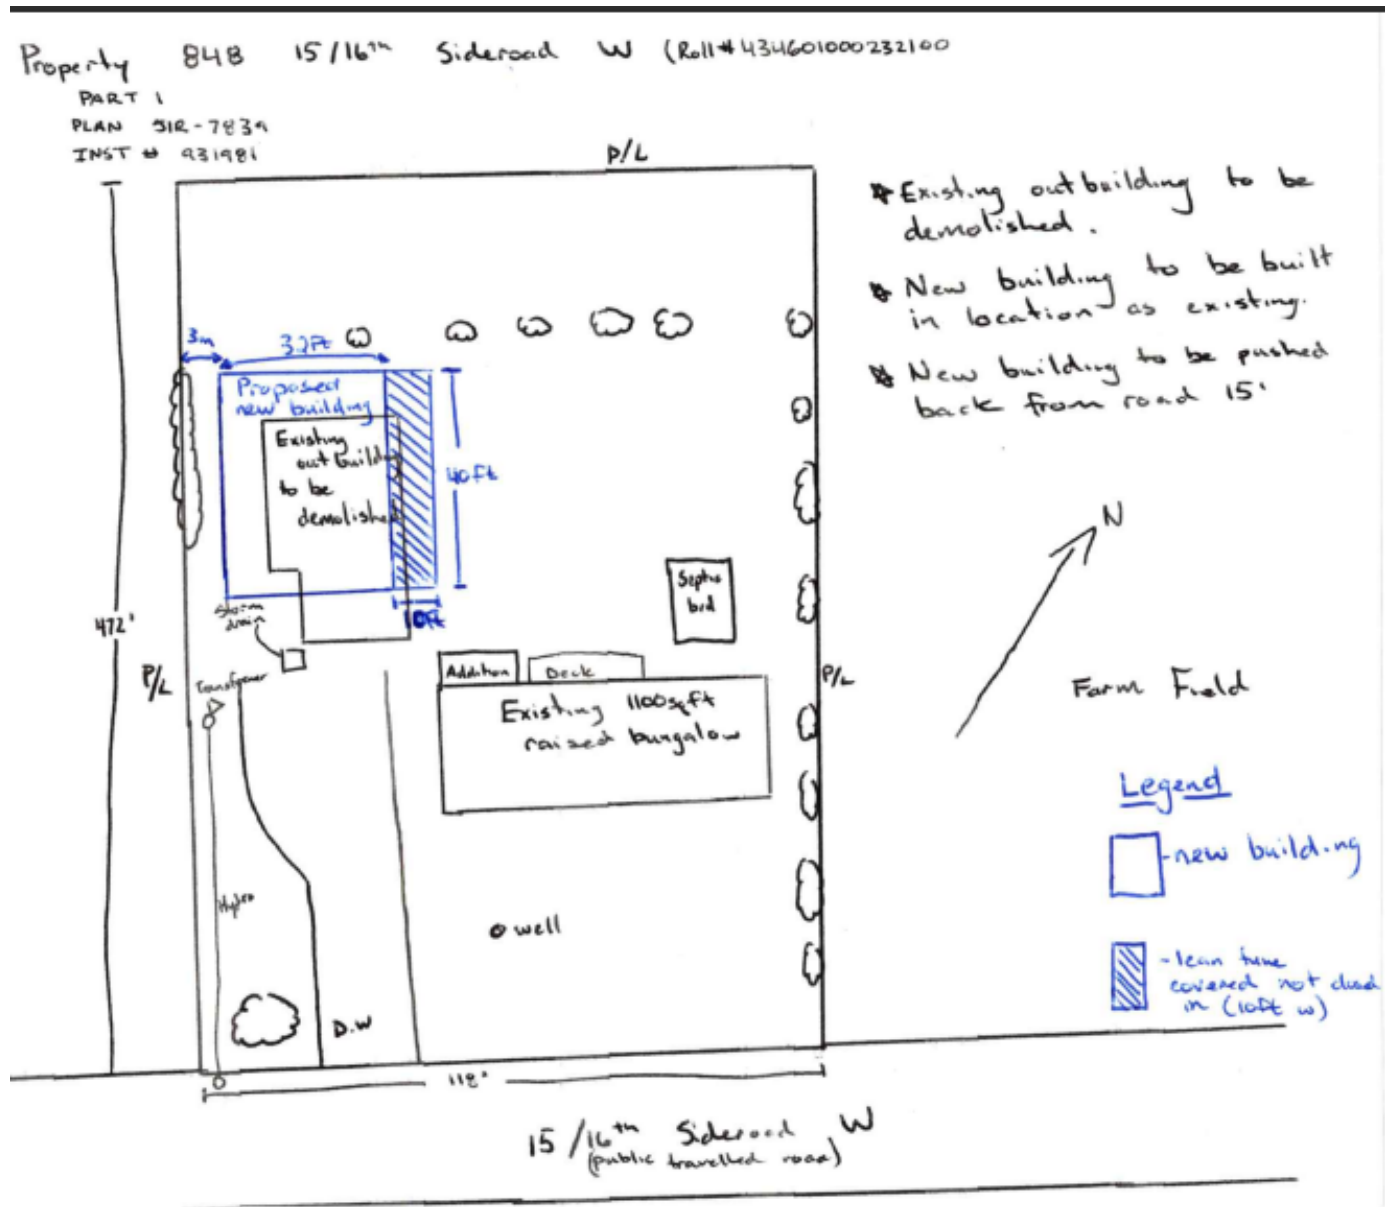 Property 848 15/16th Sideroad W (Roll# 434601000232100
PART 1
PLAN 51R-7839
INST # 931981
P/L
* Existing outbuilding to be
demolished.
* New building to be built
in location as existing.
* New building to be pushed
back from road 15'
3m
32ft
Proposed
new building
Existing
outbuilding
to be
demolished
40ft
10ft
N
Septic
bed
Storm
drain
472'
P/L
Transformer
Addition
Deck
P/L
Existing 1100sqft
raised bungalow
Farm Field
Legend
-new building
Hydro
well
- lean
covered not closed
in (10ft w)
D.W
118'
15/16th Sideroad W
(public travelled road)